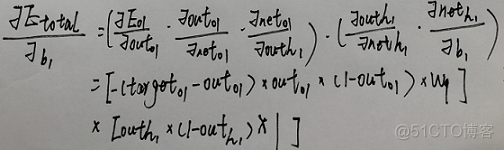 ∂E_total/∂b₁ = (∂E_o1/∂out_o1 · ∂out_o1/∂net_o1 · ∂net_o1/∂out_h₁) · (∂out_h₁/∂net_h₁ · ∂net_h₁/∂b₁)
= [-(target_o1 - out_o1) × out_o1 × (1-out_o1) × w₄]
× [out_h₁ × (1-out_h₁) × 1]
@51CTO博客